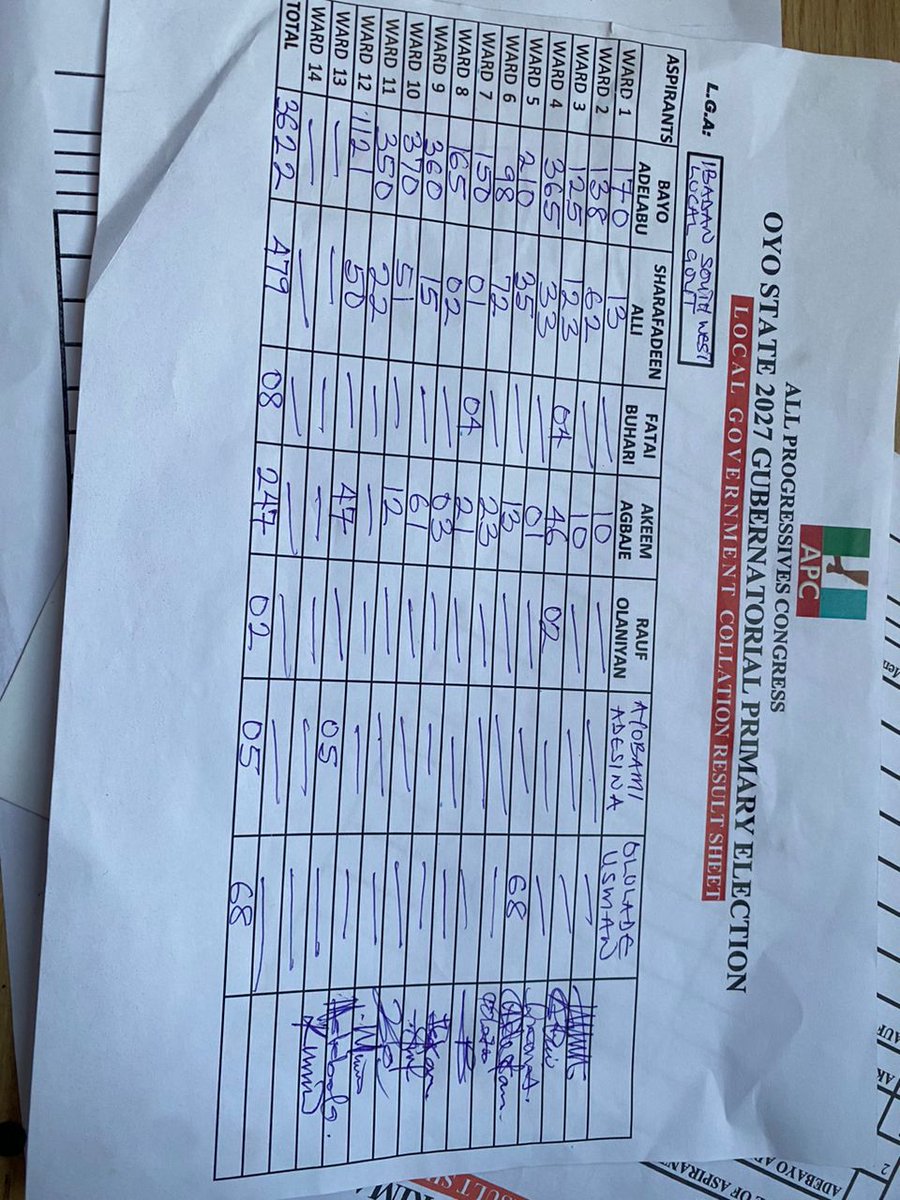 ALL PROGRESSIVES CONGRESS
APC
OYO STATE 2027 GUBERNATORIAL PRIMARY ELECTION
LOCAL GOVERNMENT COLLATION RESULT SHEET
L.G.A: IBADAN SOUTH WEST
LOCAL GOVT
ASPIRANTS BAYO ADELABU SHARAFADEEN ALLI FATAI BUHARI AKEEM AGBAJE RAUF OLANIYAN AYOBAMI ADESINA OLULADE USMAN
WARD 1 170 13 — 10 — — —
WARD 2 138 62 — 10 — — —
WARD 3 125 123 04 46 02 — —
WARD 4 365 33 — 01 — — 68
WARD 5 210 35 — 13 — — —
WARD 6 98 72 — 23 — — —
WARD 7 150 01 04 21 — — —
WARD 8 165 02 — 03 — — —
WARD 9 360 15 — 61 — — —
WARD 10 370 51 — 12 — — —
WARD 11 350 22 — — — — —
WARD 12 1121 50 — 47 — 05 —
WARD 13 — — — — — — —
WARD 14 — — — — — — —
TOTAL 3622 479 08 247 02 05 68